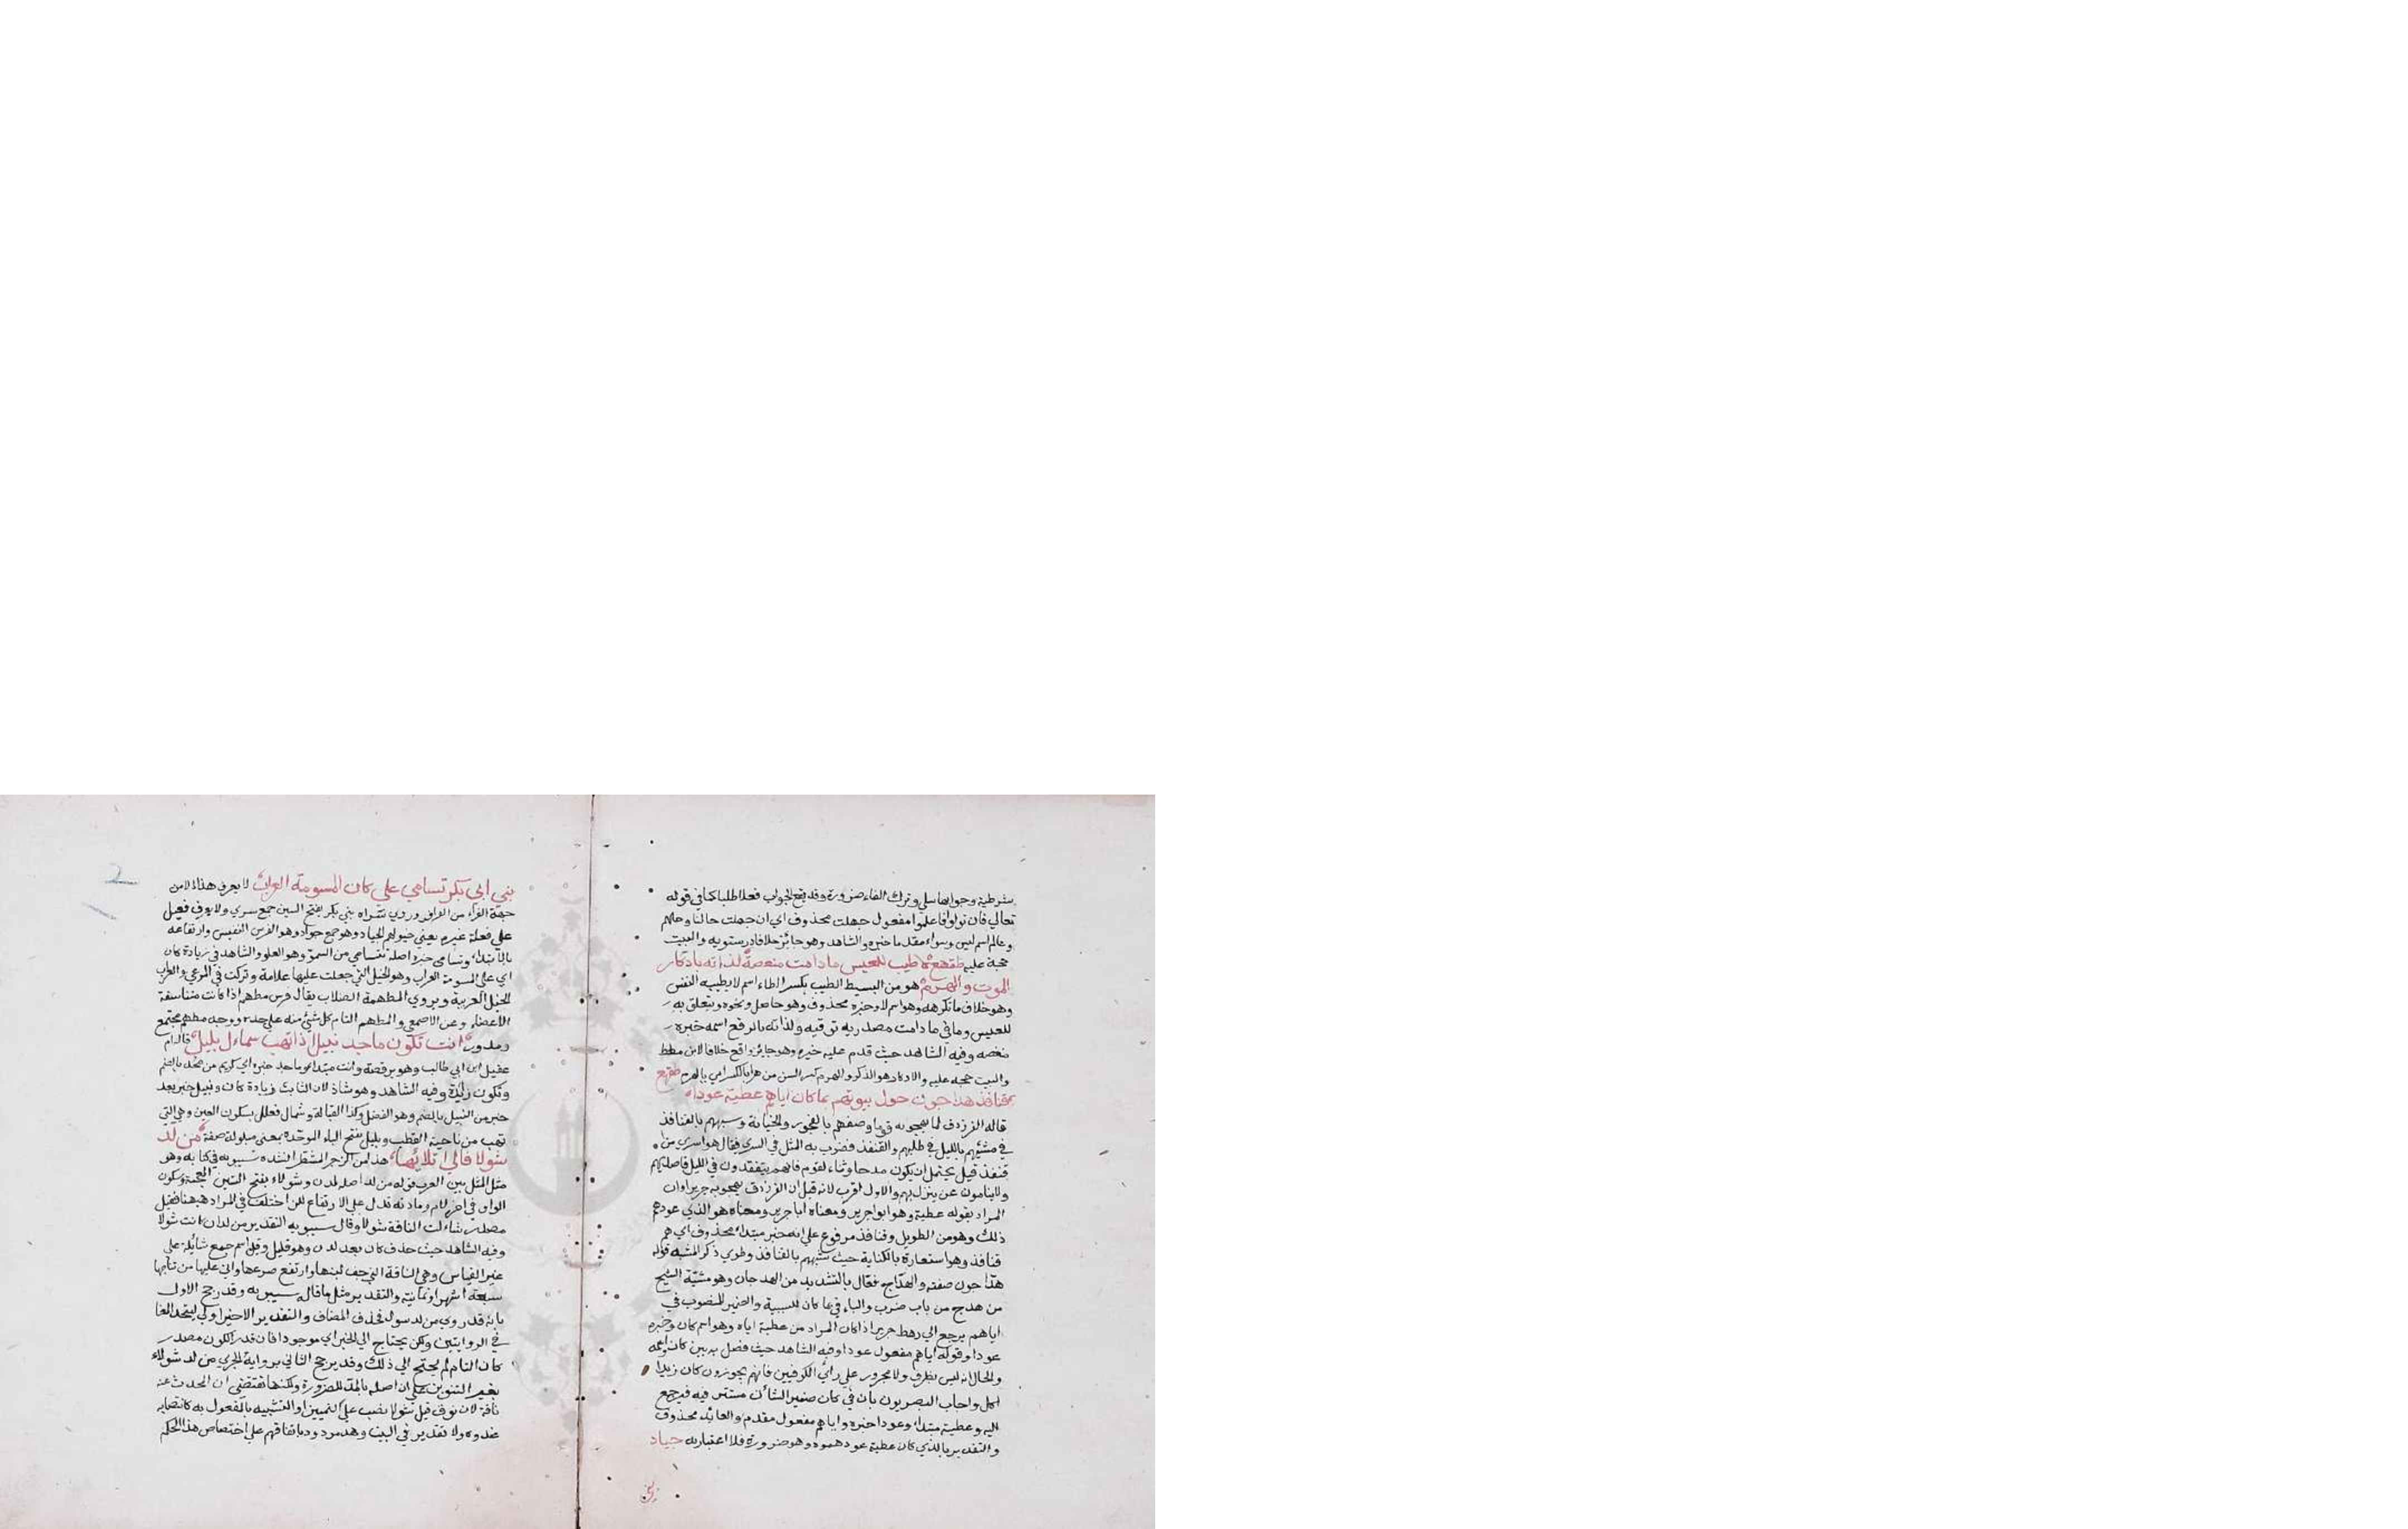 شرطية وجوابها سلي وترك الفاء ضرورة وقد يقع الجواب فعلا طلبا كما في قوله
تعالي فان تولوا فاعلموا مفعول جهلت محذوف اي ان جهلت حالنا وحالهم
وعالم اسم ليس وسواء مقدما خبره والشاهد وهو جائز خلافا لدرستويه والبيت
حجة عليه ظقهع لا طيب للعيس ما دامت منغصة لذاته بادكار
الموت والهرم هو من البسيط الطيب بكسر الطاء اسم لا يطيبه النفس
وهو خلاف ما تكرهه وهو اسم لا وخبره محذوف وهو حاصل ونحوه ويتعلق به
للعيس وما في ما دامت مصدريه توقيه ولذاته بالرفع اسمه خبره
منغصه وفيه الشاهد حيث قدم عليه خبره وهو جايز واقع خلافا لابن معط
والبيت حجه عليه والادكار هو الذكر والهرم كبر السن من هرم بالكسر اي بالهرم ظقهع
قنافذ هداجون حول بيوتهم بما كان اياهم عطية عودا
قاله الفرزدق لما يهجو به قوما وصفهم بالفجور والخيانة وشبههم بالقنافذ
في مشيهم بالليل في طلبهم والقنفذ فضرب به المثل في السري فيقال هو اسري من
قنفذ قيل يحتمل ان يكون مدحا وثناء لقوم فانهم يتفقدون في الليل فاصلتهم
ولا ينامون عن ينزل بهم والاول اقرب لانه قيل ان الفرزدق يهجو به جريرا وان
المراد بقوله عطية وهو ابو جرير ومعناه ابا جرير ومعناه هو الذي عودهم
ذلك وهو من الطويل وقنافذ مرفوع علي انه خبر مبتداء محذوف اي هم
قنافذ وهو استعارة بالكناية حيث شبههم بالقنافذ وطوي ذكر المشبه قوله
هداجون صفته والهداج فعال بالتشديد من الهدجان وهو مشية الشيخ
من هدج من باب ضرب والباء في بما كان للسببية والضمير المنصوب في
اياهم يرجع الي رهط جرير اذا كان المراد من عطية اباه وهو اسم كان وخبره
عودا وقوله اياهم مفعول عودا وفيه الشاهد حيث فصل به بين كان واسمه
والحال انه ليس بظرف ولا مجرور علي راي الكوفيين فانهم يجوزون كان زيدا
اكل واجاب البصريون بان في كان ضمير الشان مستتر فيه فيرجع
اليه وعطية مبتداء وعودا خبره واياهم مفعول مقدم والعائد محذوف
والتقدير بالذي كان عطية عودهموه وهو ضرورة فلا اعتبار به جياد
بني
بني ابي بكر تسامي علي كان المسومة العراب لا يعرف هذا الا من
جهة الفراء من الوافر وروي سراه بني بكر بفتح السين جمع سري ولا يعرف فعيل
علي فعلة غيره يعني خيولهم الجياد وهو جمع جواد وهو الفرس النفيس وارتفاعه
بالابتداء وتسامي خبره اصله تتسامي من السمو وهو العلو والشاهد في زيادة كان
اي علي المسومة العراب وهو الخيل التي جعلت عليها علامة وتركت في المرعي والعراب
الخيل العربية ويروي المطهمة الصلاب يقال فرس مطهم اذا كانت متناسقة
الاعضاء وعن الاصمعي والمطهم التام كل شئ منه علي حده ووجه مطهم مجتمع
ومدور انت تكون ماجد نبيل اذا تهب شمأل بليل قاله ام
عقيل ابن ابي طالب وهو يرقصه وانت مبتداء وماجد خبره اي كريم من مجد بالضم
وتكون زايدة وفيه الشاهد وهو شاذ لان الثابت زيادة كان ونبيل خبر بعد
خبر من النبيل بالضم وهو الفضل وكذا القبالة وشمال فعلل بسكون العين وهي التي
تهب من ناحية القطب وبليل بفتح الباء الموحده بمعني مبلوله صفة من لد
شولا فالي اتلائها هذا من الزجر المشطر انشده سيبويه في كتابه وهو
مثل المثل بين العرب قوله من لد اصله لدن وشولاء بفتح الشين المعجمة وسكون
الواو في اخره لام ومادته تدل علي الارتفاع لكن اختلف في المراد ههنا فقيل
مصدر شالت الناقة شولا وقال سيبويه التقدير من لد ان كانت شولا
وفيه الشاهد حيث حذف كان بعد لدن وهو قليل وقيل اسم جمع شائلة علي
غير القياس وهي الناقة التي جف لبنها وارتفع ضرعها واتي عليها من نتاجها
سبعة اشهر او ثمانية والتقدير مثل ما قال سيبويه وقد رجح الاول
بانه قد روي من لد شول فحذف المضاف والتقدير الاخير اولي ليتحد المعنا
في الروايتين ولكن يحتاج الي الخبر اي موجودا فان قدر الكون مصدر
كان التام لم يحتج الي ذلك وقد يرجح الثاني برواية الجرمي من لد شولاء
بغير التنوين علي ان اصله بالمد للضرورة ولكنها تقتضي ان الحدث عنه
ناقة لان نوق قيل شولا نصب علي التمييز او التشبيه بالمفعول به كانتصابه
غدوه ولا تقدير في البيت وهو مردود باتفاقهم علي اختصاص هذا الحكم